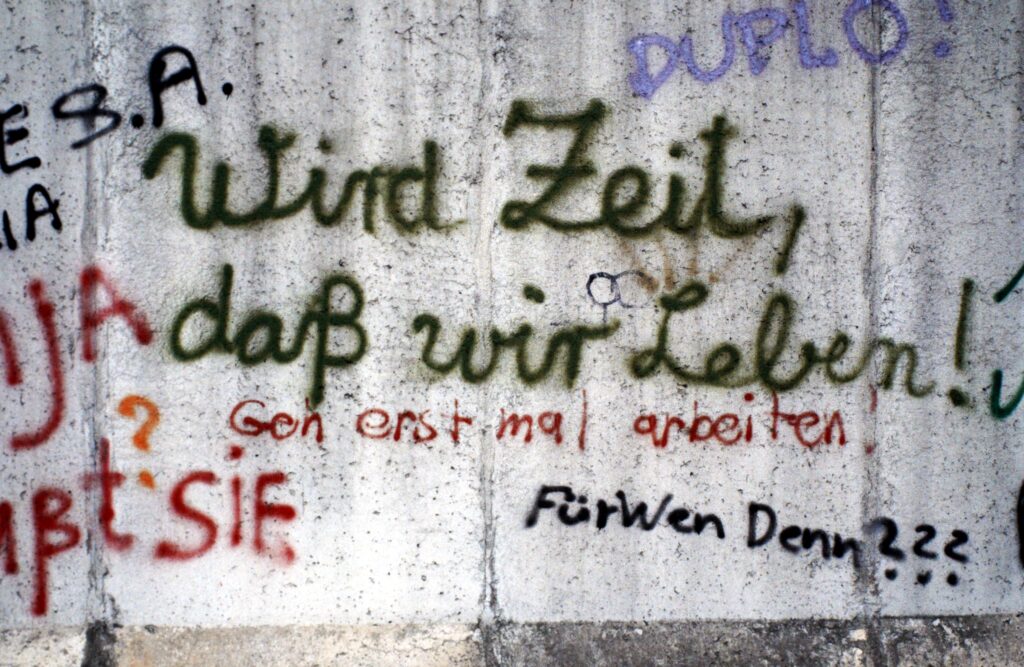 DUPLO!
E S.A.
IA
Wird Zeit,
daß wir Leben!
IJA
?
Geh erst mal arbeiten!
ußt SIE
FürWen Denn???